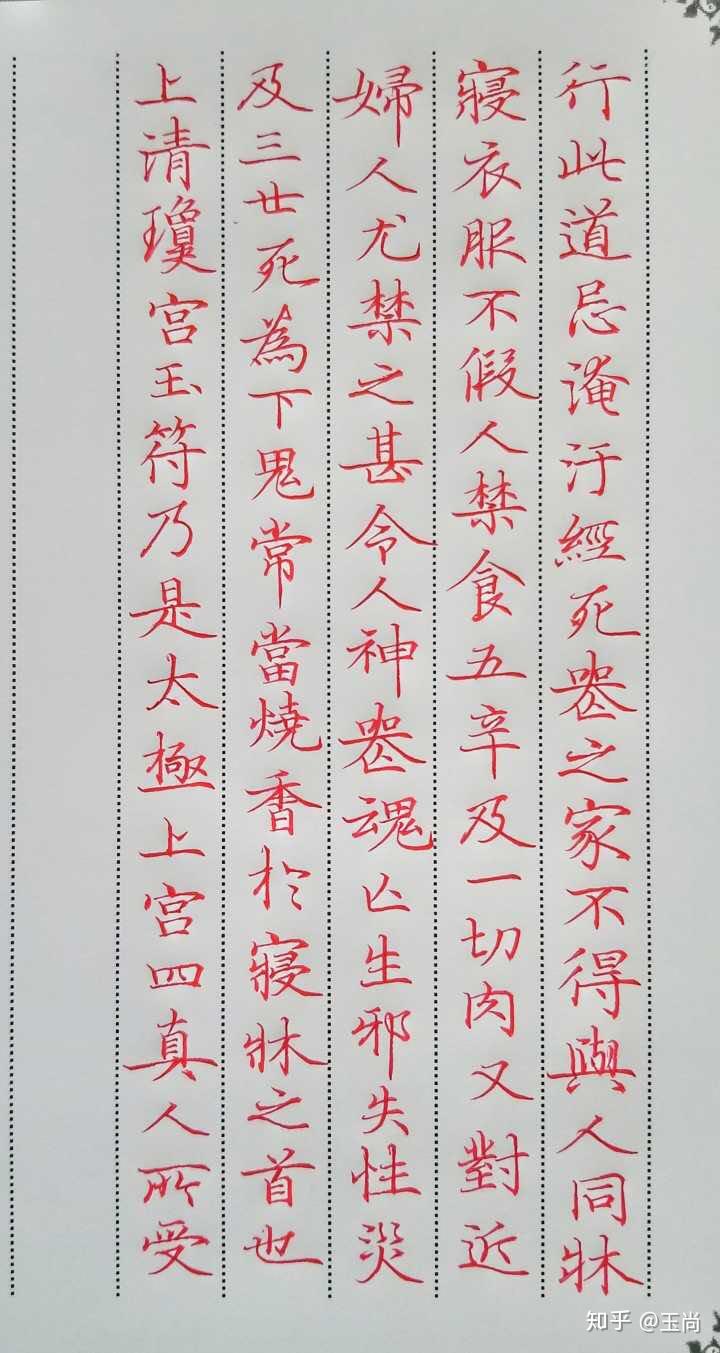 行此道忌淹汙經死喪之家不得與人同牀
寢衣服不假人禁食五辛及一切肉又對近
婦人尤禁之甚令人神喪魂亡生邪失性災
及三世死為下鬼常當燒香於寢牀之首也
上清瓊宮玉符乃是太極上宮四真人所受
知乎 @玉尚